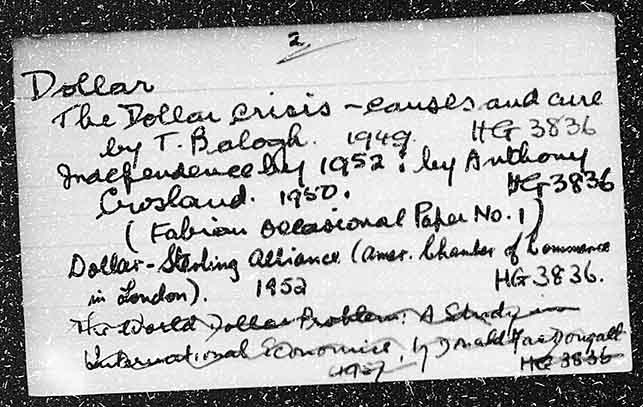 2
Dollar
The Dollar crisis - causes and cure
by T. Balogh. 1949. HG 3836
Independence by 1952: by Anthony
Crosland. 1950. HG 3836
(Fabian Occasional Paper No. 1)
Dollar-Sterling Alliance (Amer. Chamber of Commerce
in London). 1952 HG 3836.
The World Dollar Problem: A Study in
International Economics, by Donald MacDougall
1957 HG 3836